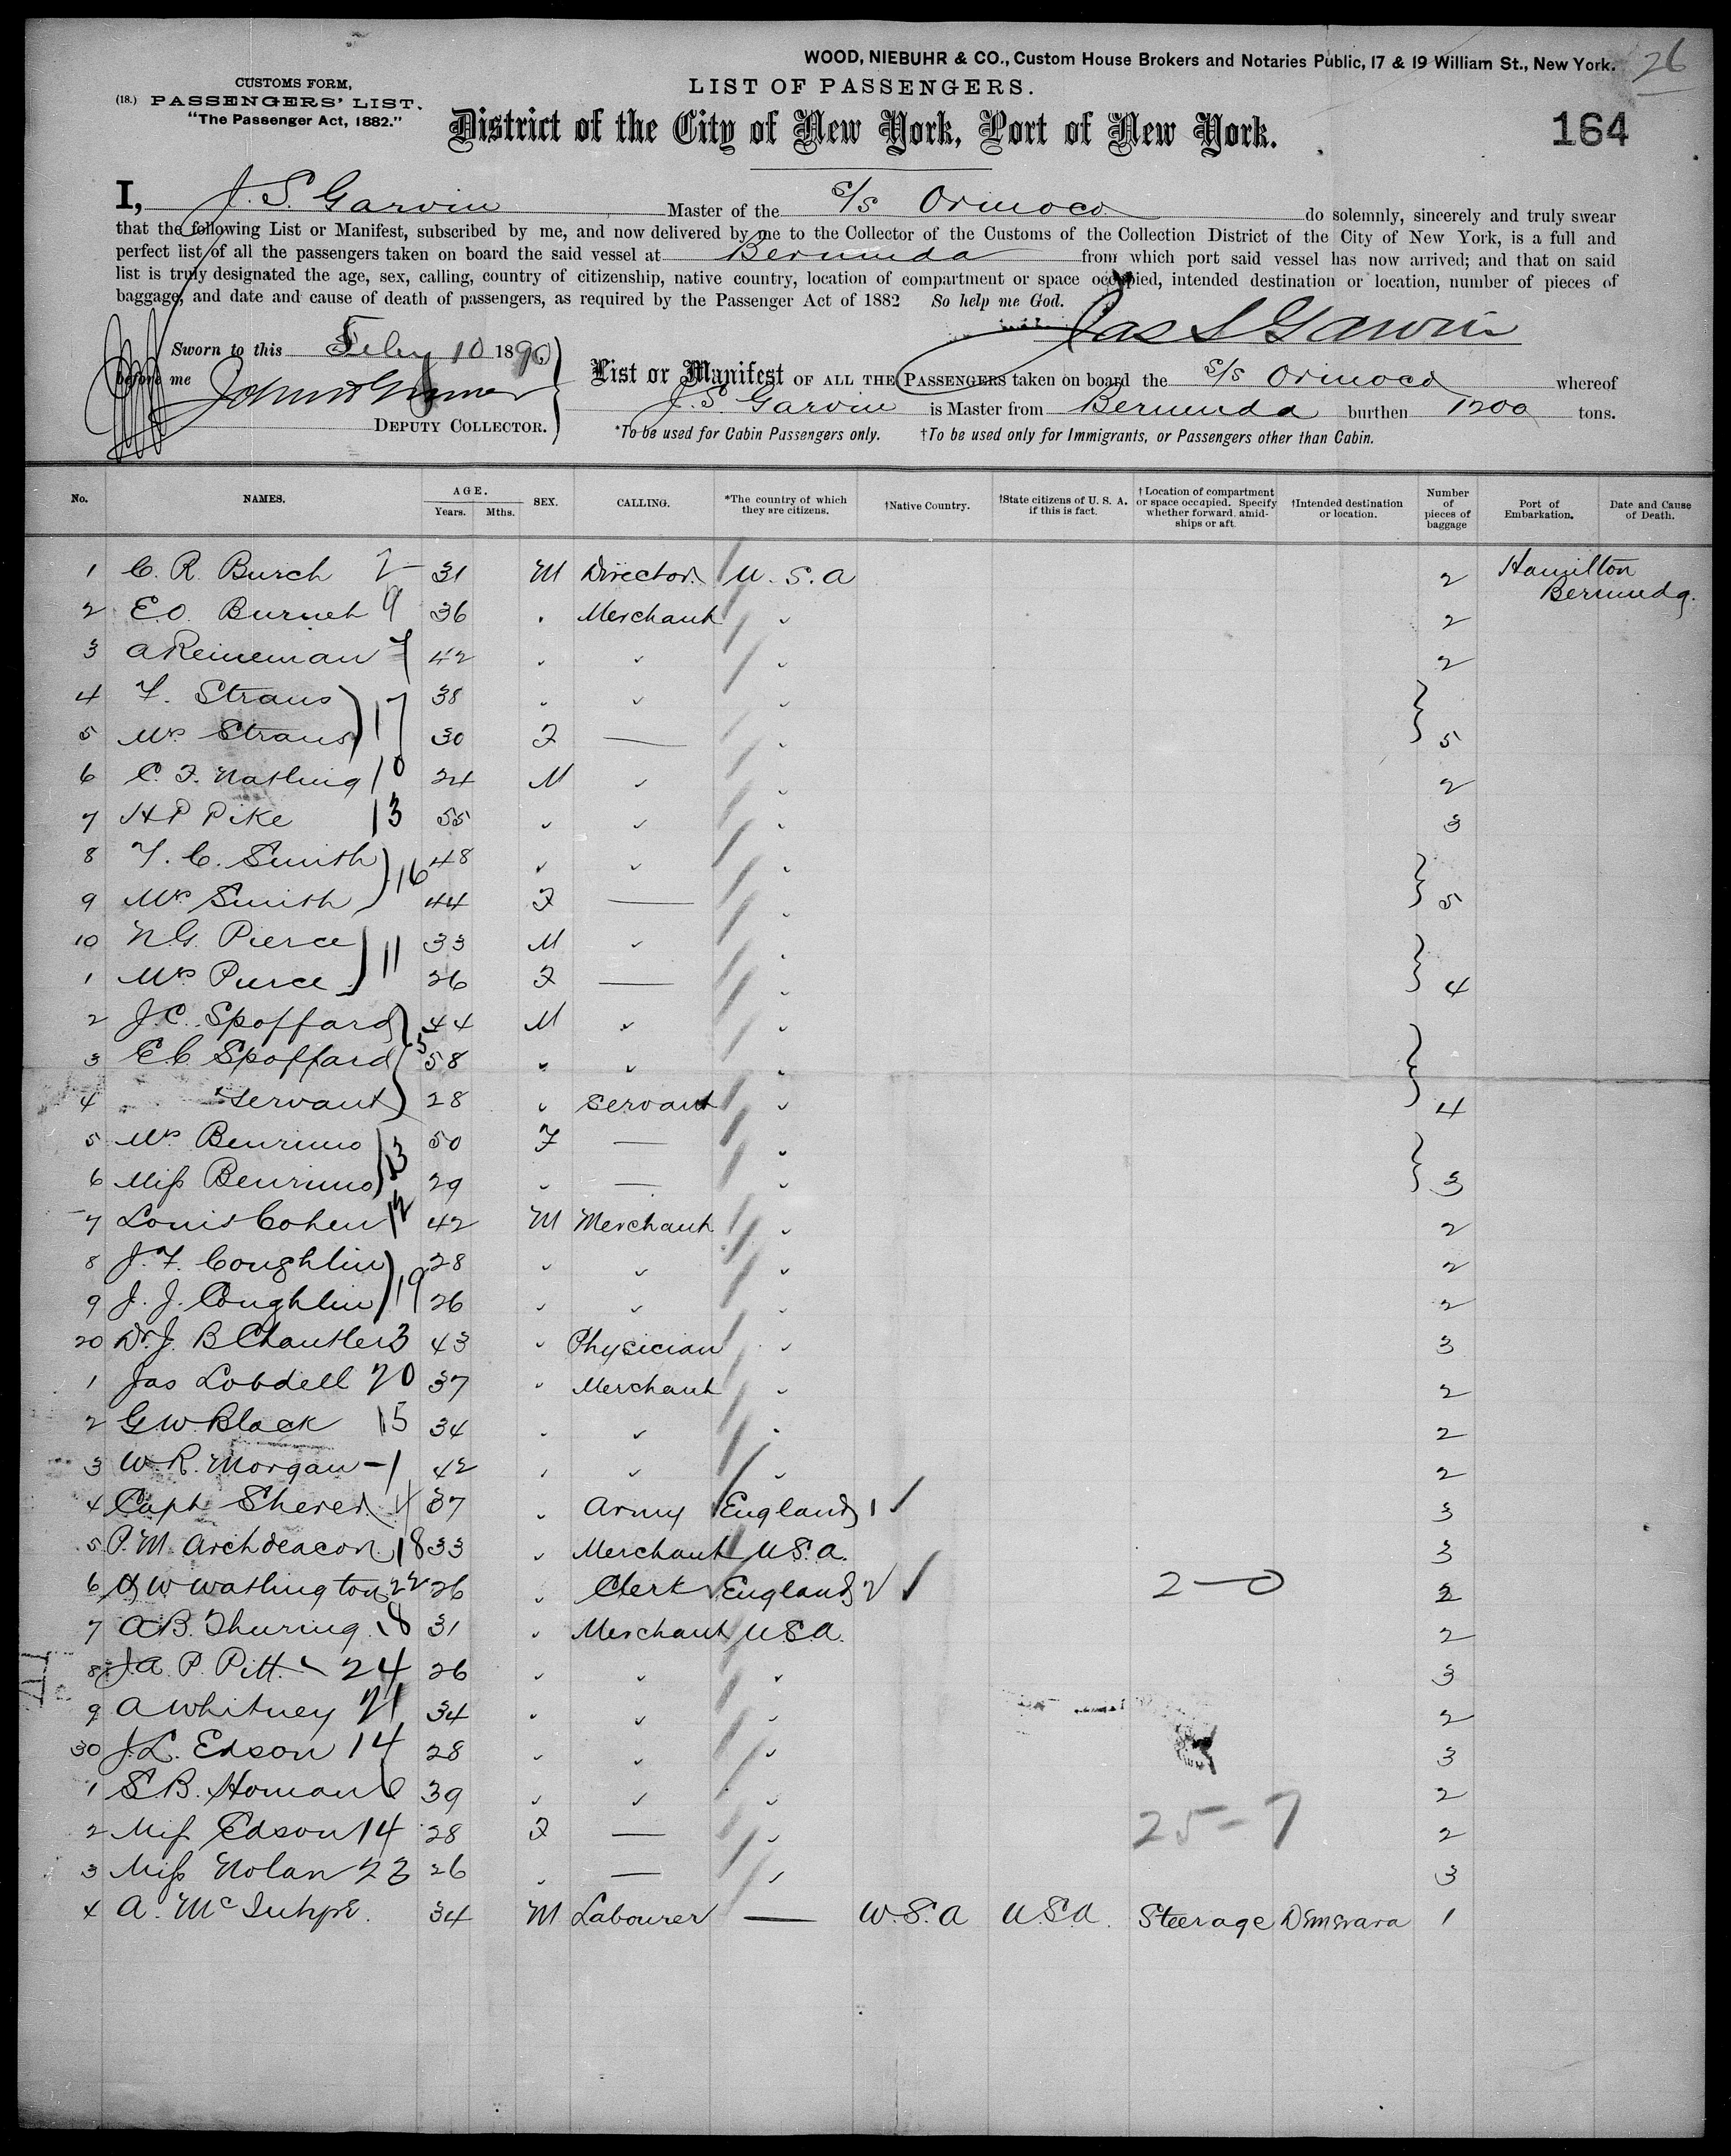 WOOD, NIEBUHR & CO., Custom House Brokers and Notaries Public, 17 & 19 William St., New York. 26
CUSTOMS FORM,
(18.) PASSENGERS' LIST.
"The Passenger Act, 1882."
LIST OF PASSENGERS.
District of the City of New York, Port of New York.
164
I, J. S. Garvin Master of the S/S Orinoco do solemnly, sincerely and truly swear
that the following List or Manifest, subscribed by me, and now delivered by me to the Collector of the Customs of the Collection District of the City of New York, is a full and
perfect list of all the passengers taken on board the said vessel at Bermuda from which port said vessel has now arrived; and that on said
list is truly designated the age, sex, calling, country of citizenship, native country, location of compartment or space occupied, intended destination or location, number of pieces of
baggage, and date and cause of death of passengers, as required by the Passenger Act of 1882 So help me God.
Jas S Garvin
Sworn to this Feby 10 1890
before me
DEPUTY COLLECTOR.
List or Manifest OF ALL THE PASSENGERS taken on board the S/S Orinoco whereof
J. S. Garvin is Master from Bermuda burthen 1200 tons.
*To be used for Cabin Passengers only. †To be used only for Immigrants, or Passengers other than Cabin.
No. NAMES. AGE. Years. Mths. SEX. CALLING. *The country of which they are citizens. †Native Country. †State citizens of U. S. A. if this is fact. †Location of compartment or space occupied. Specify whether forward, amidships or aft. †Intended destination or location. Number of pieces of baggage Port of Embarkation. Date and Cause of Death.
1 C. R. Burch 2 31 M Director U. S. A 2 Hamilton Bermuda.
2 E.O. Burnet 9 36 Merchant 2
3 A Reineman 7 42 2
4 F. Straus 38
5 Mrs Straus 17 30 F — 5
6 C. F. Nathing 10 24 M 2
7 H P Pike 13 55 3
8 F. C. Smith 48
9 Mrs Smith 16 44 F — 5
10 N. G. Pierce 33 M
1 Mrs Pierce 11 26 F — 4
2 J. C. Spoffard 44 M
3 E C Spoffard 5 58
4 " servant 28 Servant 4
5 Mrs Benrimo 50 F —
6 Miss Benrimo 13 29 — 3
7 Louis Cohen 12 42 M Merchant 2
8 J. F. Coughlin 28 2
9 J. J. Coughlin 19 26 2
20 Dr. J. B Chantler 3 43 Physician 3
1 Jas Lobdell 20 37 Merchant 2
2 G. W. Black 15 34 2
3 W. R. Morgan - 1 42 2
4 Capt Sherer 4 37 Army England 1 ✓ 3
5 P. M. Archdeacon 18 33 Merchant U.S.A. 3
6 H W Watlington 22 26 Clerk England 2 ✓ 2—0 2
7 A. B. Thuring 8 31 Merchant U.S.A. 2
8 J. A. P. Pitt 24 26 3
9 A Whitney 21 34 2
30 J. L. Edson 14 28 3
1 S. B. Homan 6 39 2
25-7
2 Miss Edson 14 28 F — 2
3 Miss Nolan 23 26 — 3
4 A. 34 M Labourer — U.S.A U.S.A. Steerage Demerara 1